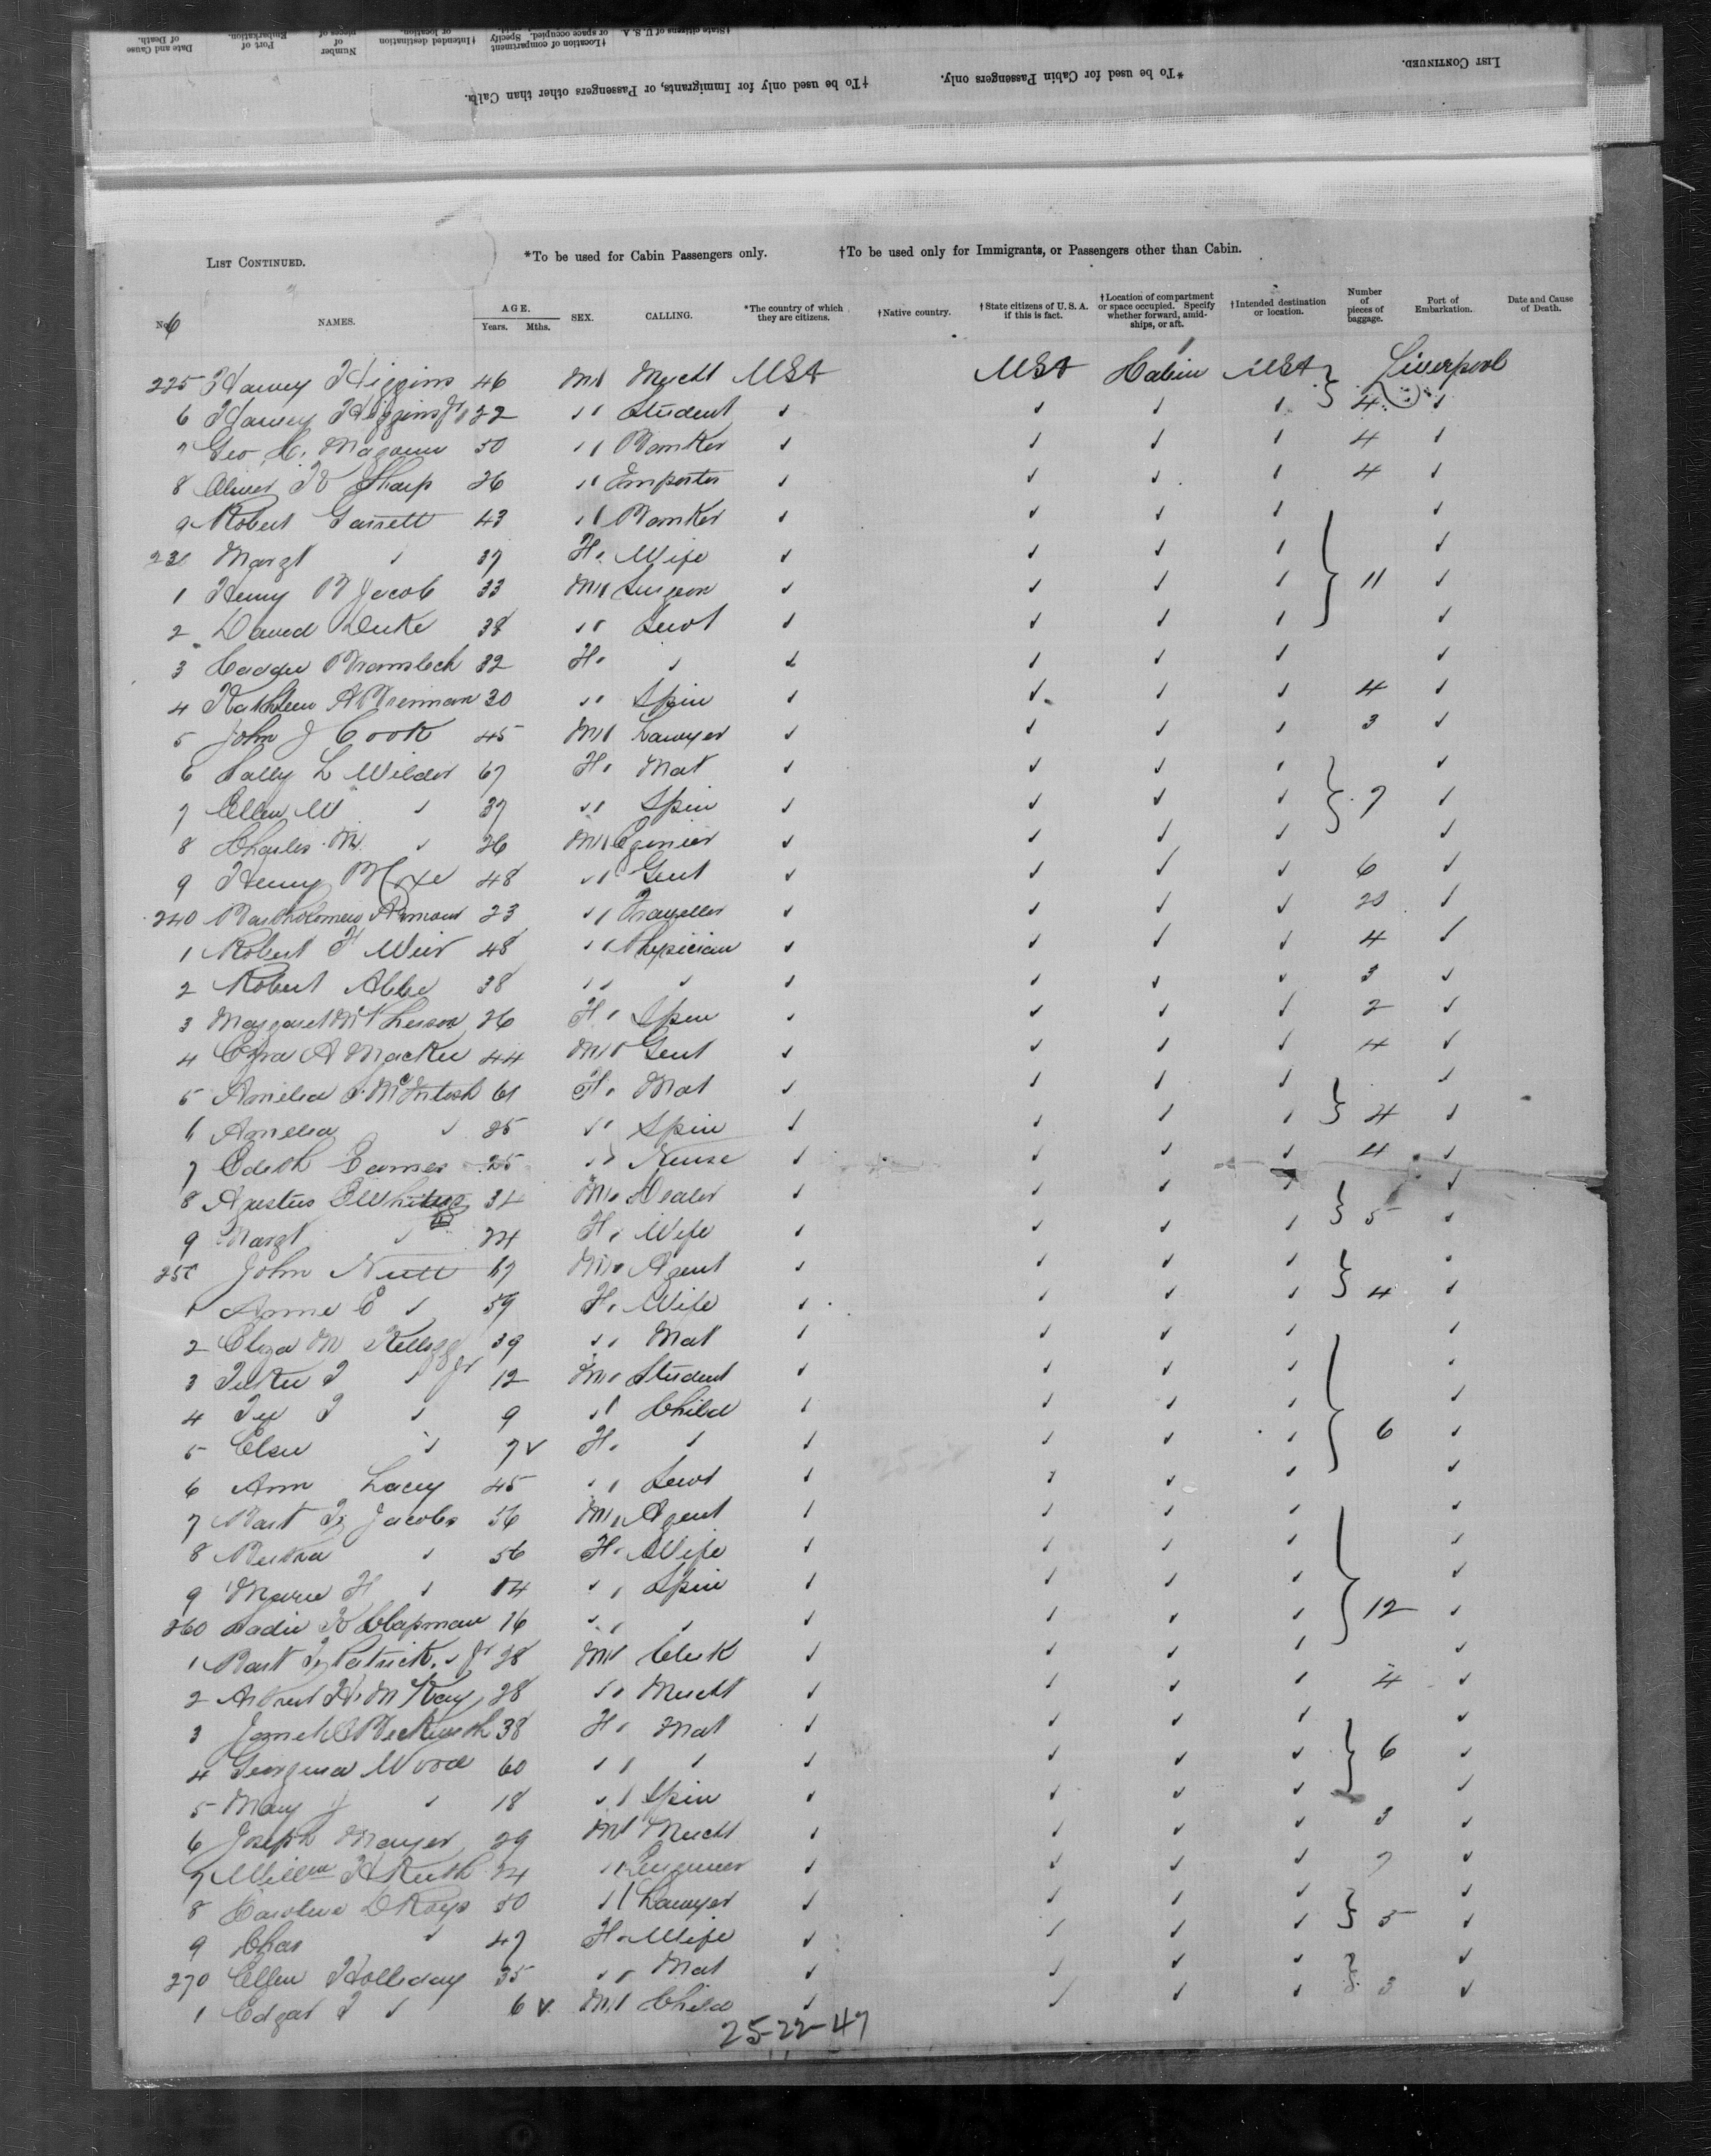 LIST CONTINUED.
*To be used for Cabin Passengers only.
†To be used only for Immigrants, or Passengers other than Cabin.
LIST CONTINUED. *To be used for Cabin Passengers only. †To be used only for Immigrants, or Passengers other than Cabin.
No. 6 NAMES. AGE. Years. Mths. SEX. CALLING. *The country of which they are citizens. †Native country. †State citizens of U.S.A. if this is fact. †Location of compartment or space occupied. Specify whether forward, amidships, or aft. †Intended destination or location. Number of pieces of baggage. Port of Embarkation. Date and Cause of Death.
225 Harvey Higgins 46 M Mercht USA USA Cabin USA Liverpool
6 Harvey Higgins Jr 22 " Student 4
7 Geo C. Magoun 50 " Banker 4
8 Oliver W Sharp 26 " Importer 4
9 Robert Garrett 43 " Banker
230 Margt " 37 F. Wife
1 Henry B Jacob 33 M Surgeon 11
2 David Duke 38 " Servt
3 32 F. "
4 Kathleen A Brennan 30 " Spin 4
5 John J Cook 45 M Lawyer 3
6 Sally L Wilder 67 F. Mat
7 Ellen W " 37 " Spin 7
8 Charles M. " 26 M
9 Henry 48 " Gent 6
240 Bartholomew Armour 23 " Traveller 20
1 Robert F Weir 48 " Physician 4
2 Robert Abbe 38 " " 3
3 Margaret 26 F. Spin 2
4 Ezra A Mackie 44 M Gent 4
5 Amelia S. McIntosh 61 F. Mat
6 Amelia " 25 " Spin 4
7 Edith Eames 25 " Nurse 4
8 Agustus 34 M. Dealer
9 Margt " 24 F. Wife 5
250 John Nutt 67 M Agent
1 Anne E " 59 F. Wife 4
2 Eliza M Kellogg 39 " Mat
3 " Jr 12 M. Student
4 " 9 " Child
5 Elsie " 7 v F. " 6
6 Ann Lacey 45 " Servt
7 Bart Jacobs 56 M. Agent
8 " 56 F. Wife
9 Marie H " 14 " Spin
260 Sadie K Clapman 16 " " 12
1 Bart Patrick " Jr 28 M Clerk
2 McKay 28 " Mercht 4
3 Beckwith 38 F. Mat
4 Georgina Wood 60 " " 6
5 May J " 18 " Spin
6 Joseph Mayer 29 M Mercht 3
7 Willm H Keith 24 " Engineer 7
8 Caroline 50 " Lawyer
9 Chas " 47 F. Wife 5
270 Ellen Holliday 35 " Mat
1 Edgar T " 6 v. M Child 3
25-22-47